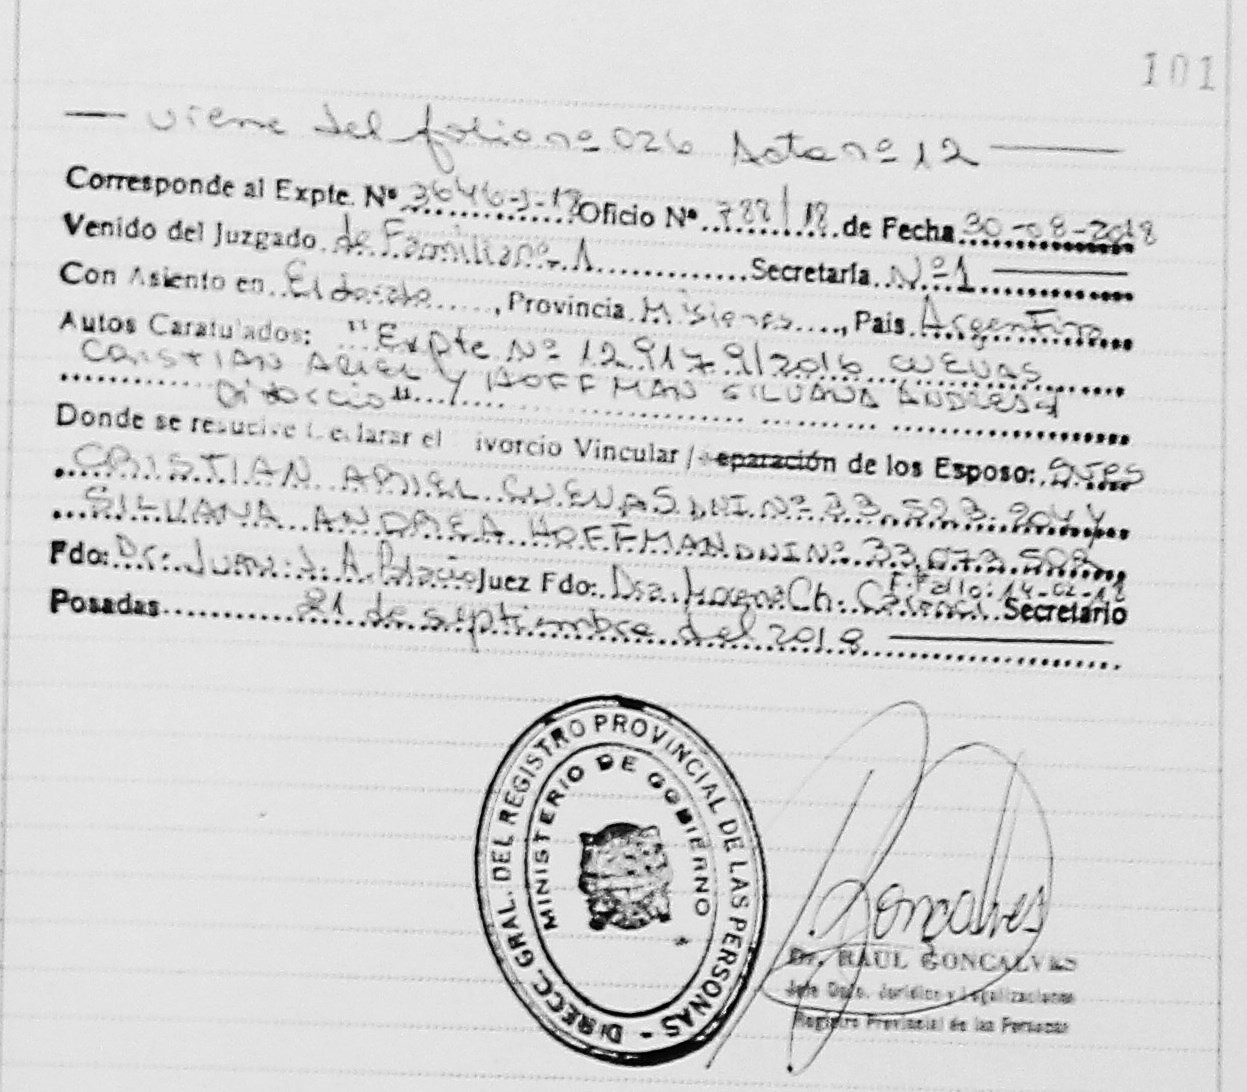 101
— viene del folio nº 026 Acta nº 12 —
Corresponde al Expte. Nº 3646-J-18 Oficio Nº 788/18 de Fecha 30-08-2018
Venido del Juzgado de Familia nº 1 Secretaría Nº 1
Con Asiento en Eldorado, Provincia Misiones, País Argentina
Autos Caratulados: "Expte Nº 129179/2016 CUEVAS
CRISTIAN ARIEL Y HOFFMAN SILVANA ANDREA
Divorcio"
Donde se resuelve Declarar el Divorcio Vincular / Separación de los Esposo: Sres
CRISTIAN ARIEL CUEVAS DNI Nº 33.523.
SILVANA ANDREA HOFFMAN DNI Nº 33.073.
F. Fallo: 14-02-18
Fdo: Dr. Juan J. A. Juez Fdo: Dra. Ch. Secretario
Posadas 21 de septiembre del 2018
DIRECC. GRAL. DEL REGISTRO PROVINCIAL DE LAS PERSONAS -
MINISTERIO DE GOBIERNO
Gonçalves
Dr. RAUL GONCALVES
Jefe Dpto. Jurídico y Legalizaciones
Registro Provincial de las Personas